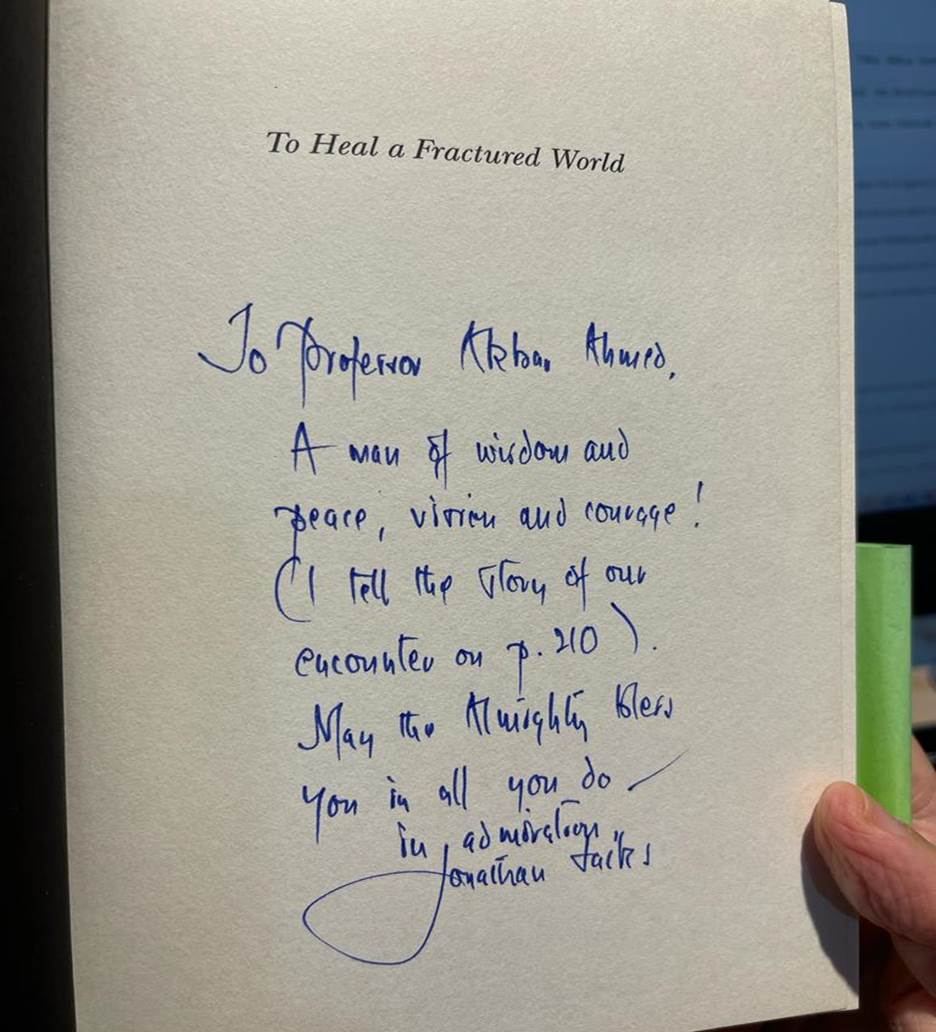 To Heal a Fractured World
To Professor Akbar Ahmed,
A man of wisdom and
peace, vision and courage!
(I tell the story of our
encounter on p. 210).
May the Almighty bless
you in all you do –
in admiration,
Jonathan Sacks